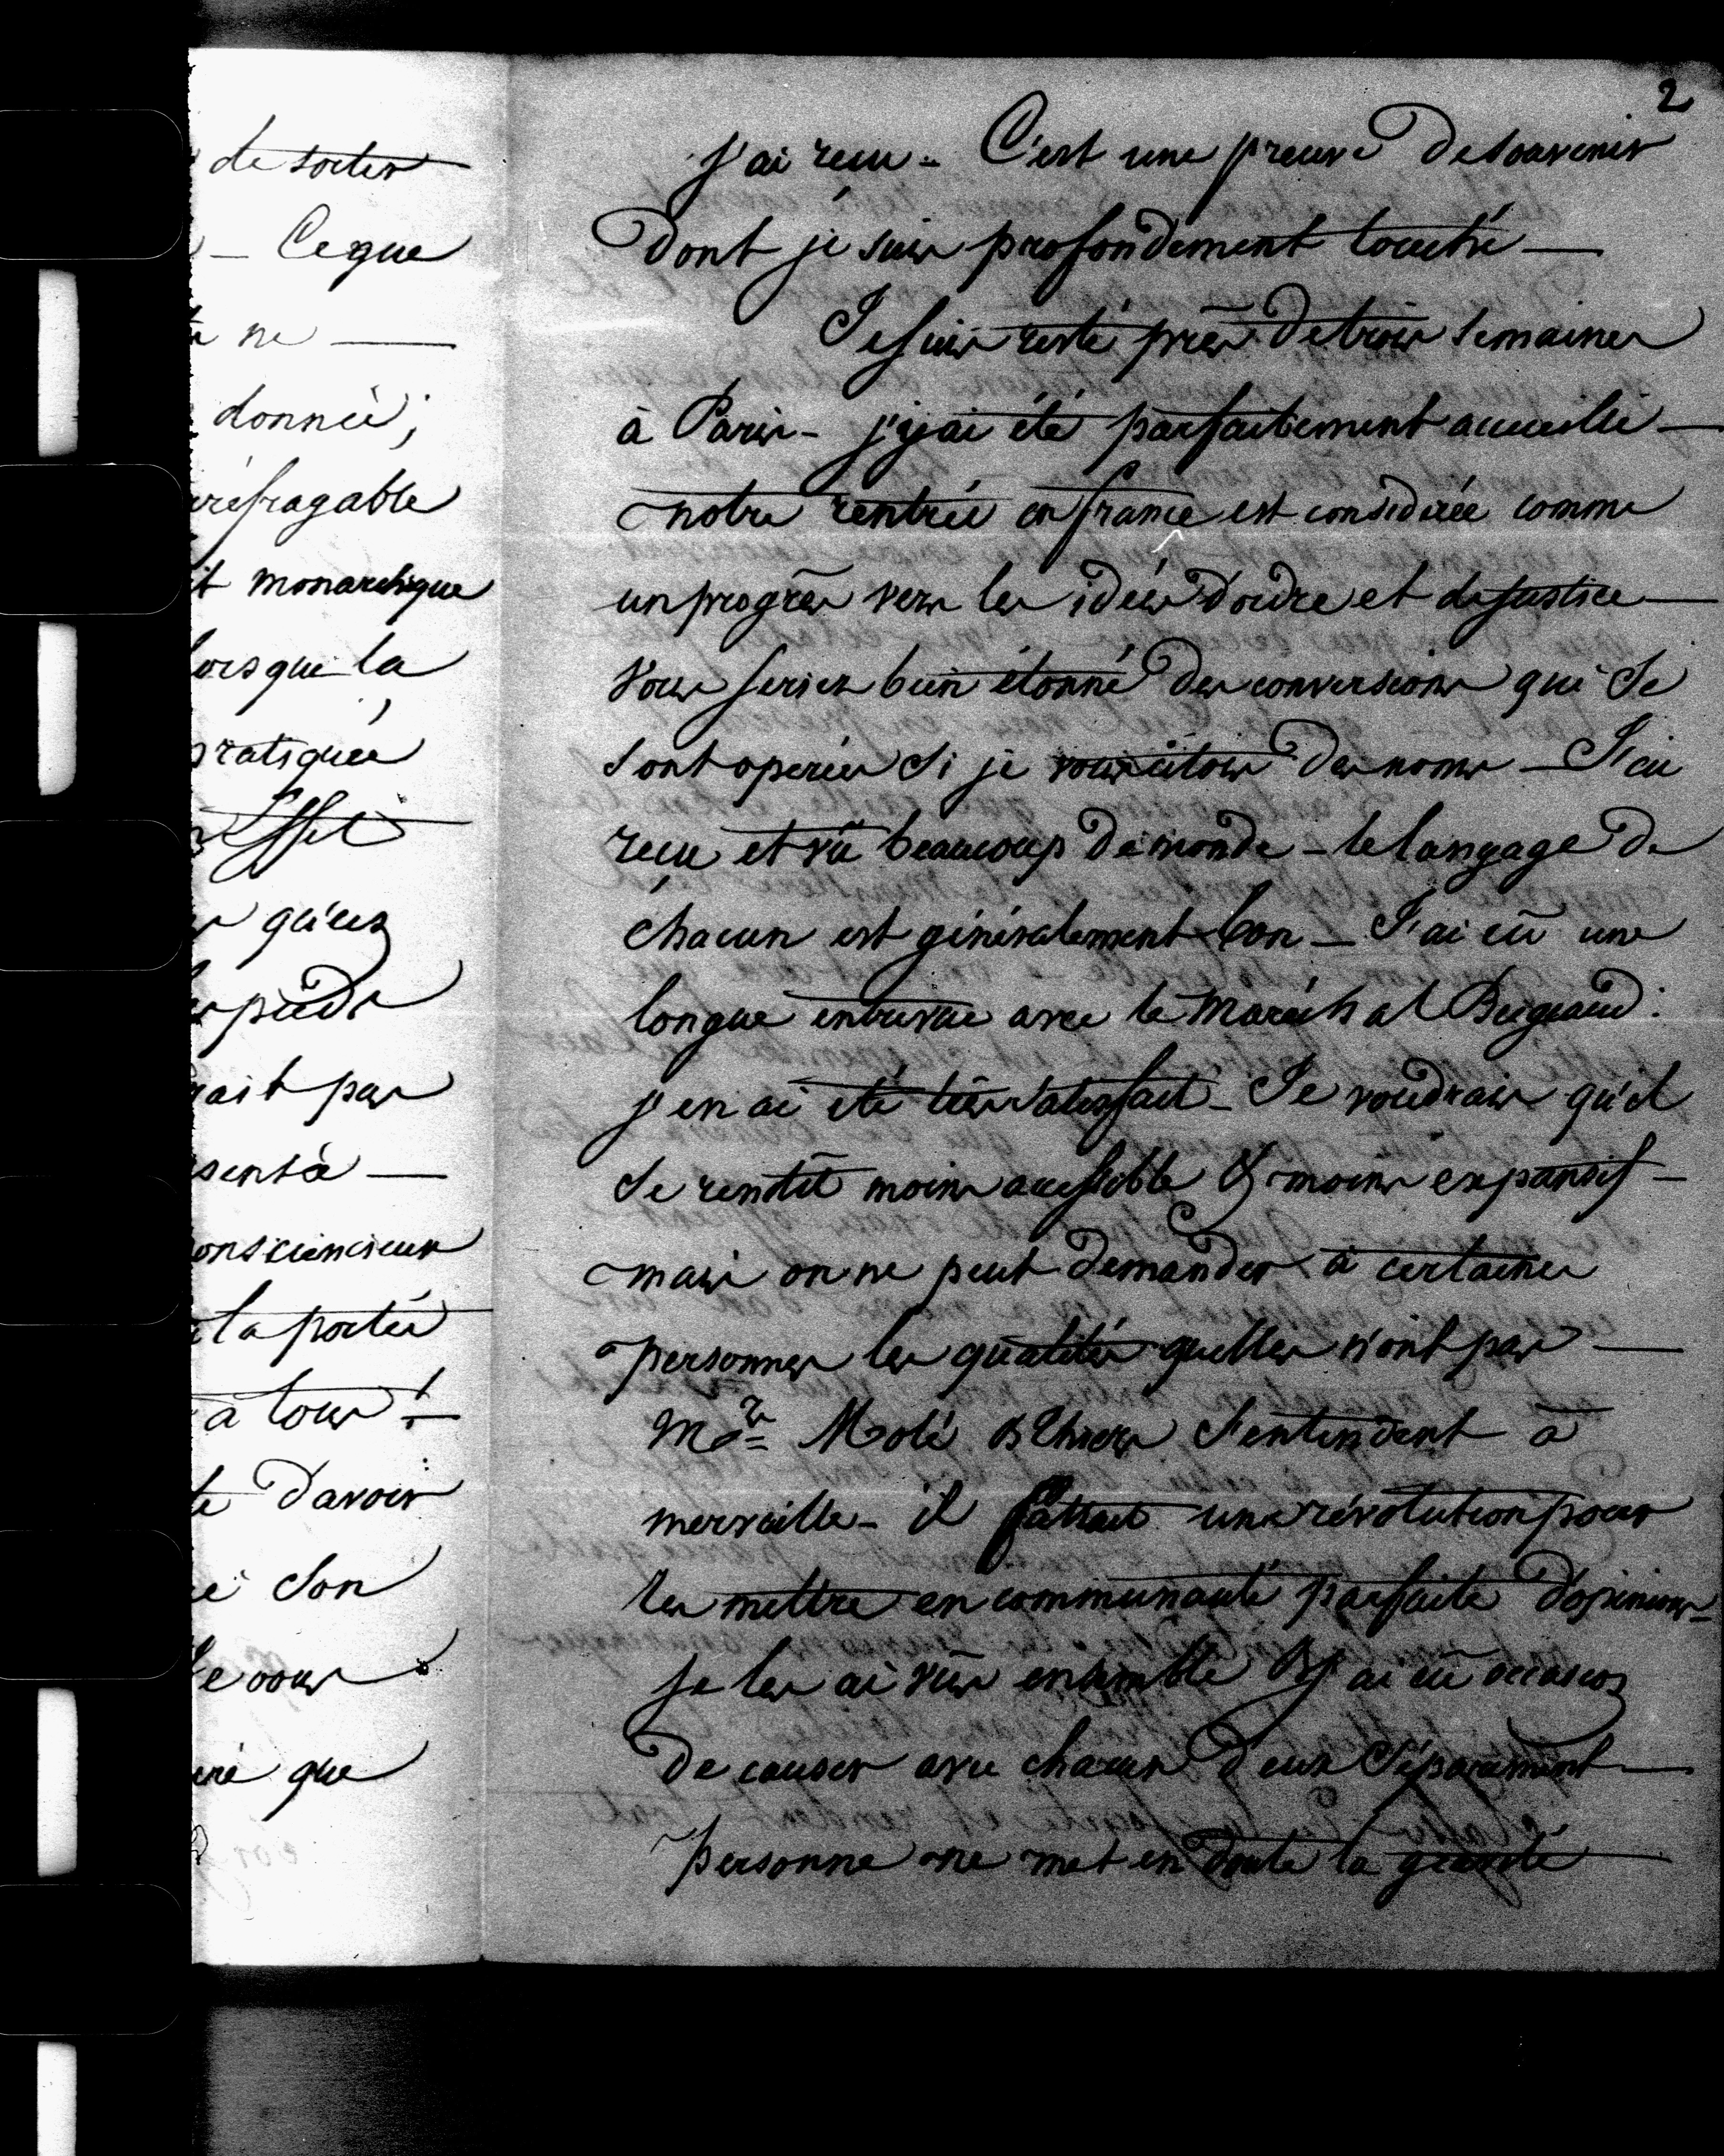 de sortir
- Ce que
te ne —
donnée ;
irréfragable
it monarchique
lorsque la
pratiquée
Effet
qu'un
pieds
rait pas
senté —
consciencieux
la portée
à tous !
te d'avoir
é son
e vous
eré que
2
j'ai reçu - C'est une preuve de souvenir
dont je suis profondement touché —
Je suis resté près de trois semaines
à Paris - j'y ai été parfaitement accueilli —
notre rentrée en france est considérée comme
un progrès vers les idées d'ordre et de justice —
Vous seriez bien étonné des conversions qui se
sont operées si je vous citois des noms — J'ai
reçu et vû beaucoup de monde - le langage de
chacun est généralement bon — J'ai eû une
longue entrevue avec le Maréchal Bugeaud :
j'en ai été très satisfait - Je voudrais qu'il
se rendît moins accessible & moins expansif —
mais on ne peut demander à certaines
personnes les qualités qu'elles n'ont pas —
Mrs Molé & Thiers s'entendent à
merveille - il fallait une révolution pour
les mettre en communauté parfaite d'opinions -
je les ai vûs ensemble & j'ai eû occasion
de causer avec chacun d'eux séparément —
Personne ne met en doute la gravité